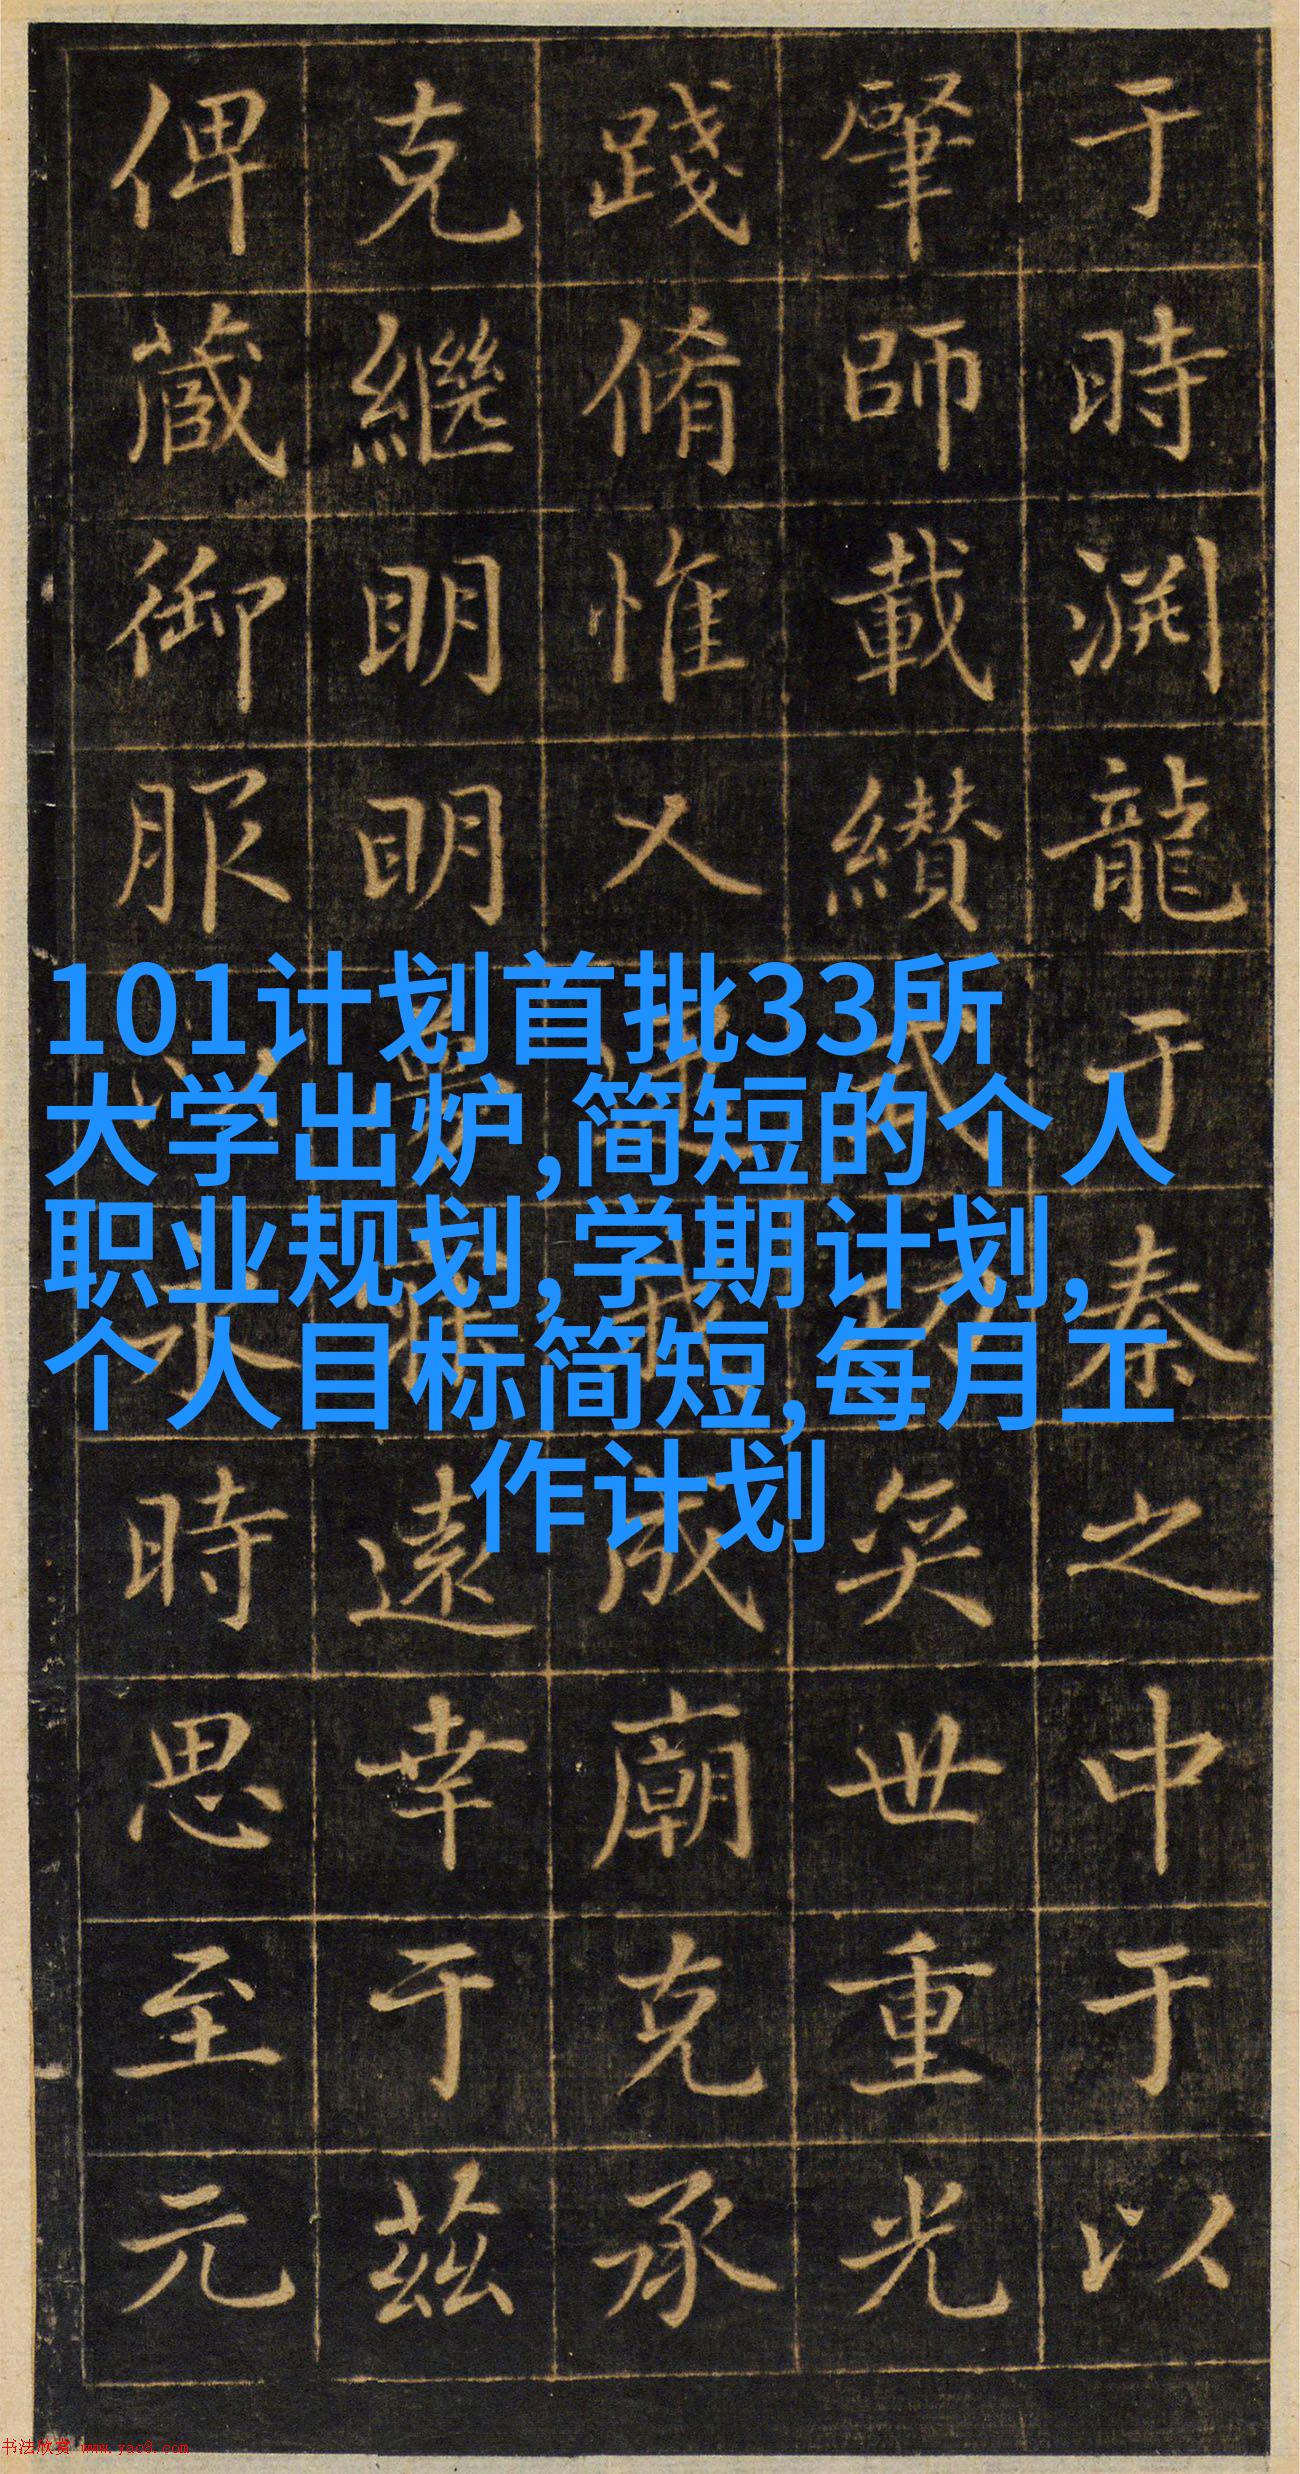 于時渊龍于秦之中于以
肇師載纉武奐世重光
踐脩惟乂成廟克承
克繼明明遠幸于茲
俾蕆御服以永時思至元
101计划首批33所
大学出炉,简短的个人
职业规划,学期计划,
个人目标简短,每月工
作计划
书法欣赏 www.yac8.com